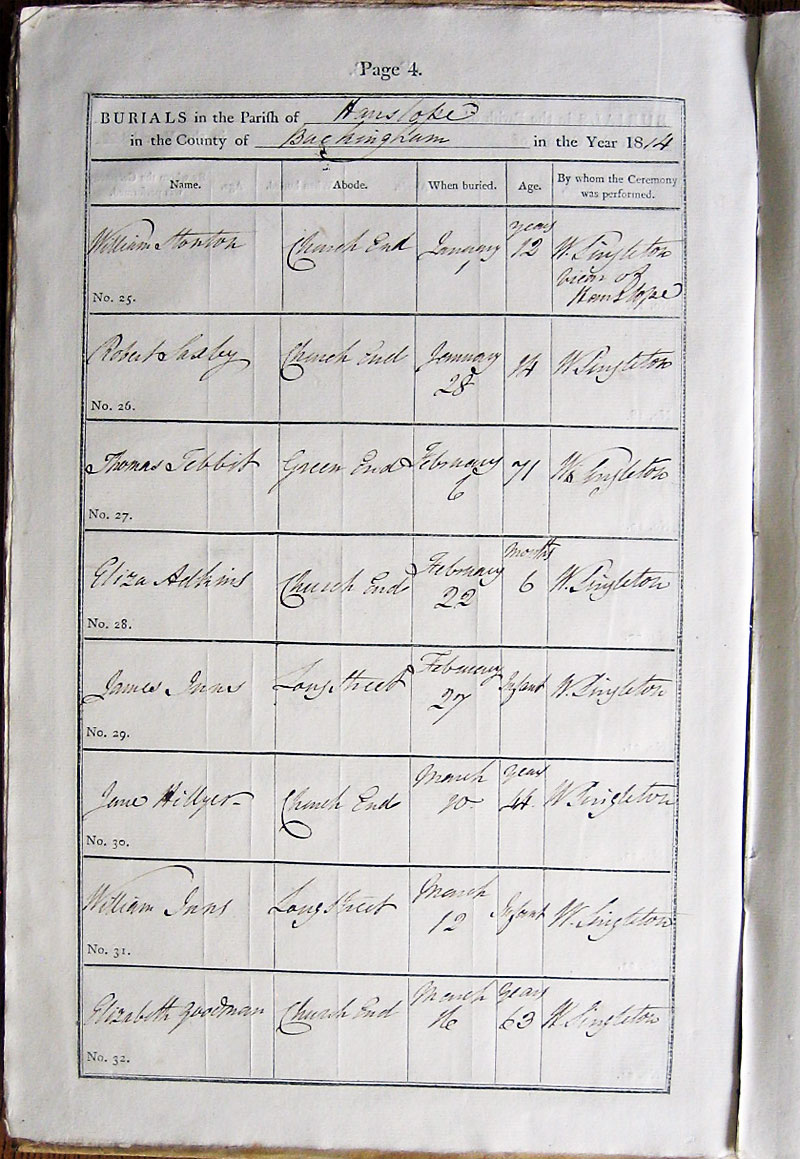 Page 4.
BURIALS in the Parish of Hanslope
in the County of Buckingham in the Year 1814
Name. Abode. When buried. Age. By whom the Ceremony was performed.
William Stonton Church End January 1 years 12 W. Singleton
Vicar of
Hanslope
No. 25.
Robert Saxby Church End January 28 14 W Singleton
No. 26.
Thomas Tebbit Green End February 6 71 W Singleton
No. 27.
Eliza Adkins Church End February 22 Months 6 W. Singleton
No. 28.
James Inns Long Street February 27 Infant W. Singleton
No. 29.
Jane Hillyer Church End March 10 years 44 W Singleton
No. 30.
William Inns Long Street March 12 Infant W. Singleton
No. 31.
Elizabeth Goodman Church End March 16 years 63 W Singleton
No. 32.